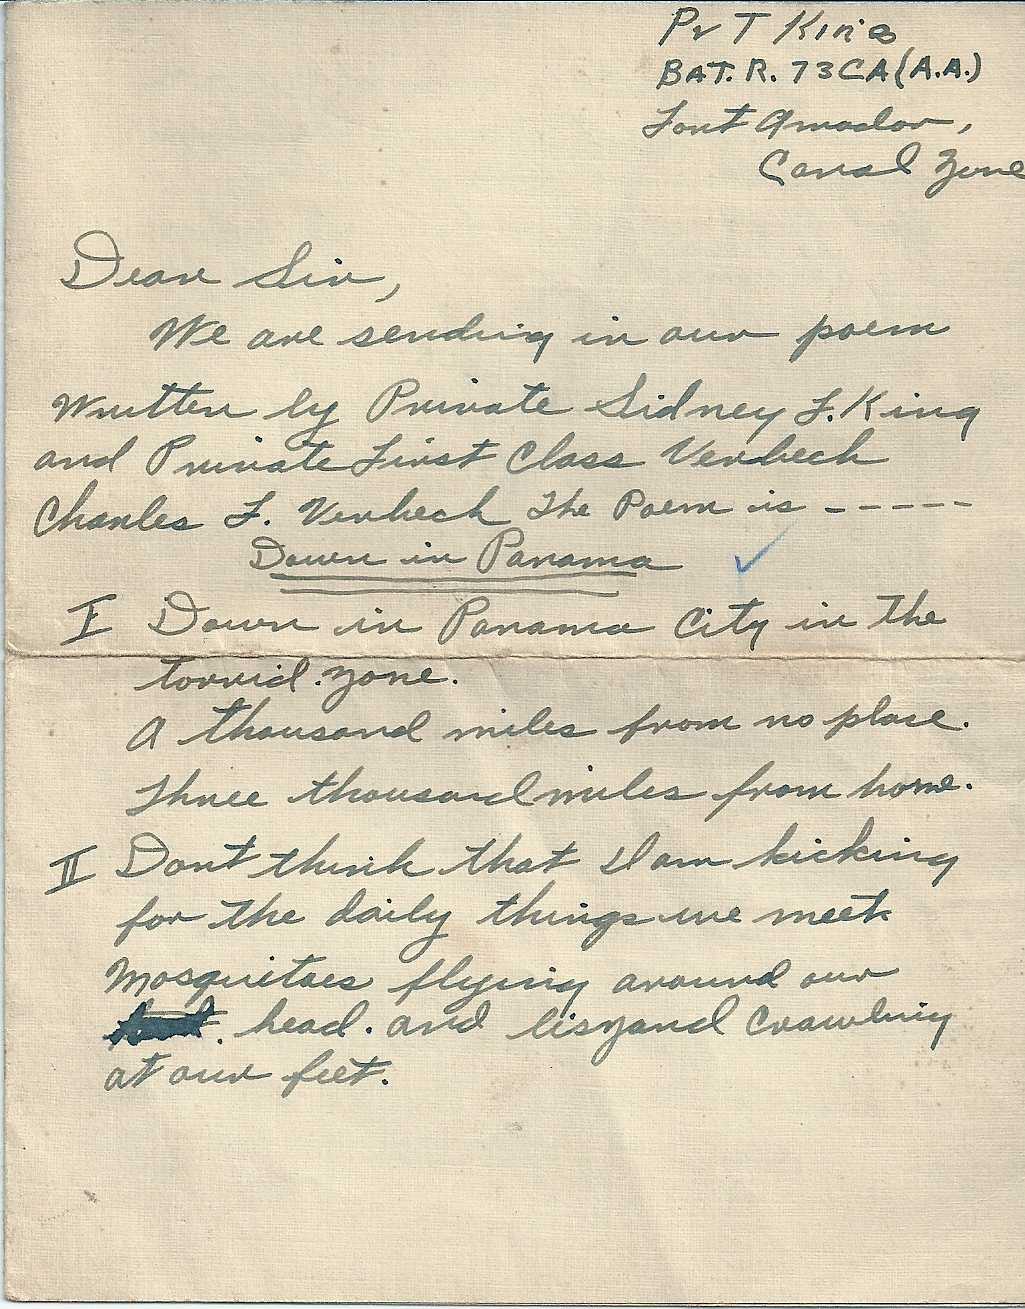 PvT King
BAT. R. 73CA (A.A.)
Fort Amador,
Canal Zone
Dear Sir,
We are sending in our poem
Written by Private Sidney F. King
and Private First Class Verbeck
Charles F. Verbeck The Poem is -----
Down in Panama
I Down in Panama City in the
torrid. zone.
A thousand miles from no place.
Three thousand miles from home.
II Dont think that I am kicking
for the daily things we meet
Mosquitoes flying around our
head. and liszard crawling
at our feet.